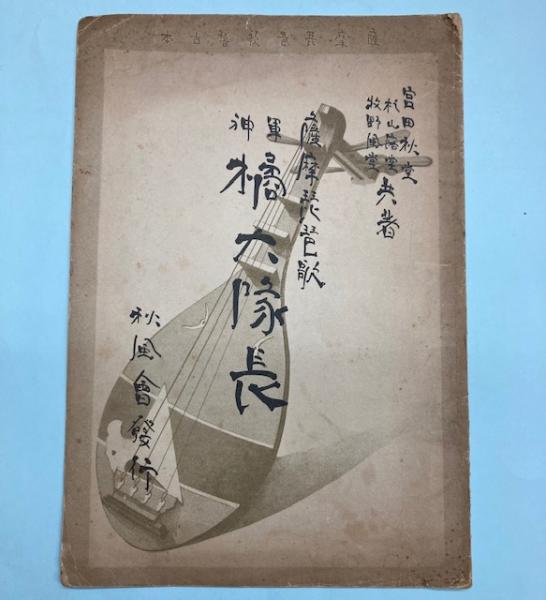 薩摩琵琶歌稽古本
宮田秋堂
杉山
牧野風堂
共著
薩摩琵琶歌
軍神
橘大隊長
秋風會發行